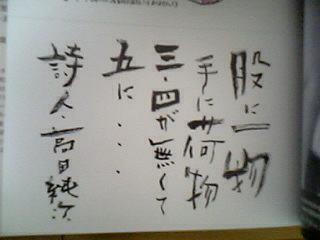 股に一物
手に荷物
三・四が無くて
五に・・・
詩人・高田純次